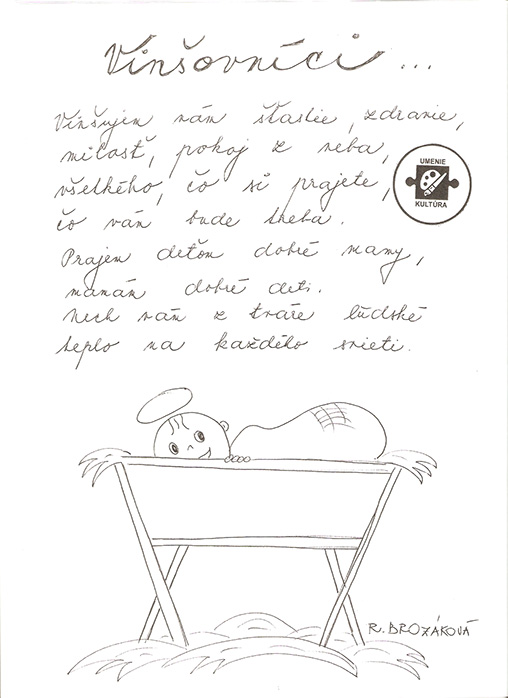 Vinšovníci...
Vinšujem vám šťastie, zdravie,
milosť, pokoj z neba,
všetkého, čo si prajete,
čo vám bude treba.
Prajem deťom dobré mamy,
mamám dobré deti.
Nech vám z tváre ľúdské
teplo na každého svieti.
UMENIE
KULTÚRA
R. BROZÁKOVÁ